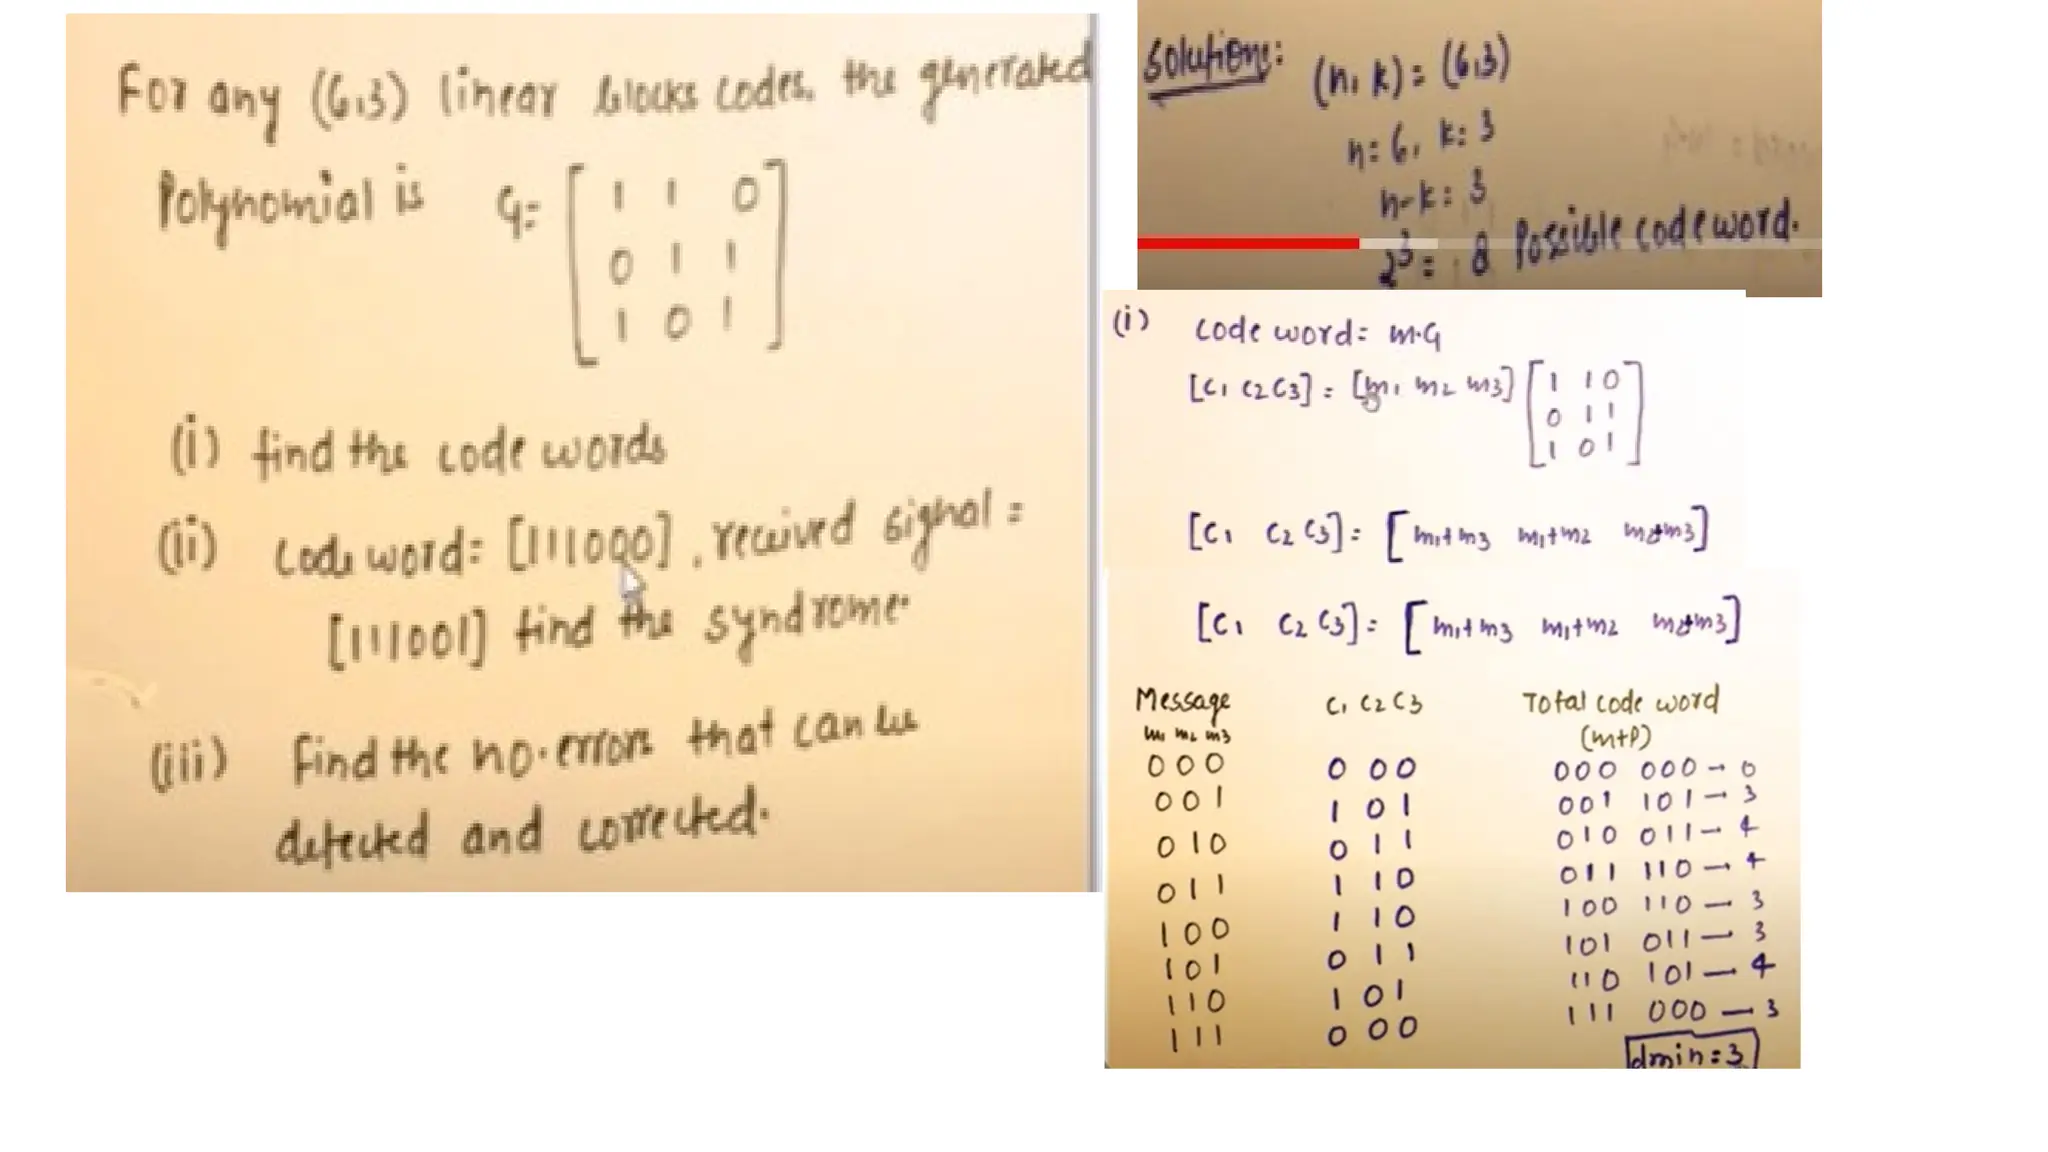 For any (6,3) linear blocks codes, the generated
Polynomial is G= [ 1 1 0
0 1 1
1 0 1 ]
(i) find the code words
(ii) code word= [111000], received signal =
[111001] find the syndrome.
(iii) Find the no. errors that can be
detected and corrected.
Solutions: (n, k) = (6,3)
n= 6, k= 3
n-k= 3
2³ = 8 Possible codeword.
(i) code word= m.G
[C1 C2 C3] = [m1 m2 m3] [ 1 1 0
0 1 1
1 0 1 ]
[C1 C2 C3] = [ m1+m3 m1+m2 m2+m3 ]
[C1 C2 C3] = [ m1+m3 m1+m2 m2+m3 ]
Message C1 C2 C3 Total code word
m1 m2 m3 (m+P)
0 0 0 0 0 0 000 000 → 0
0 0 1 1 0 1 001 101 → 3
0 1 0 0 1 1 010 011 → 4
0 1 1 1 1 0 011 110 → 4
1 0 0 1 1 0 100 110 → 3
1 0 1 0 1 1 101 011 → 3
1 1 0 1 0 1 110 101 → 4
1 1 1 0 0 0 111 000 → 3
dmin = 3